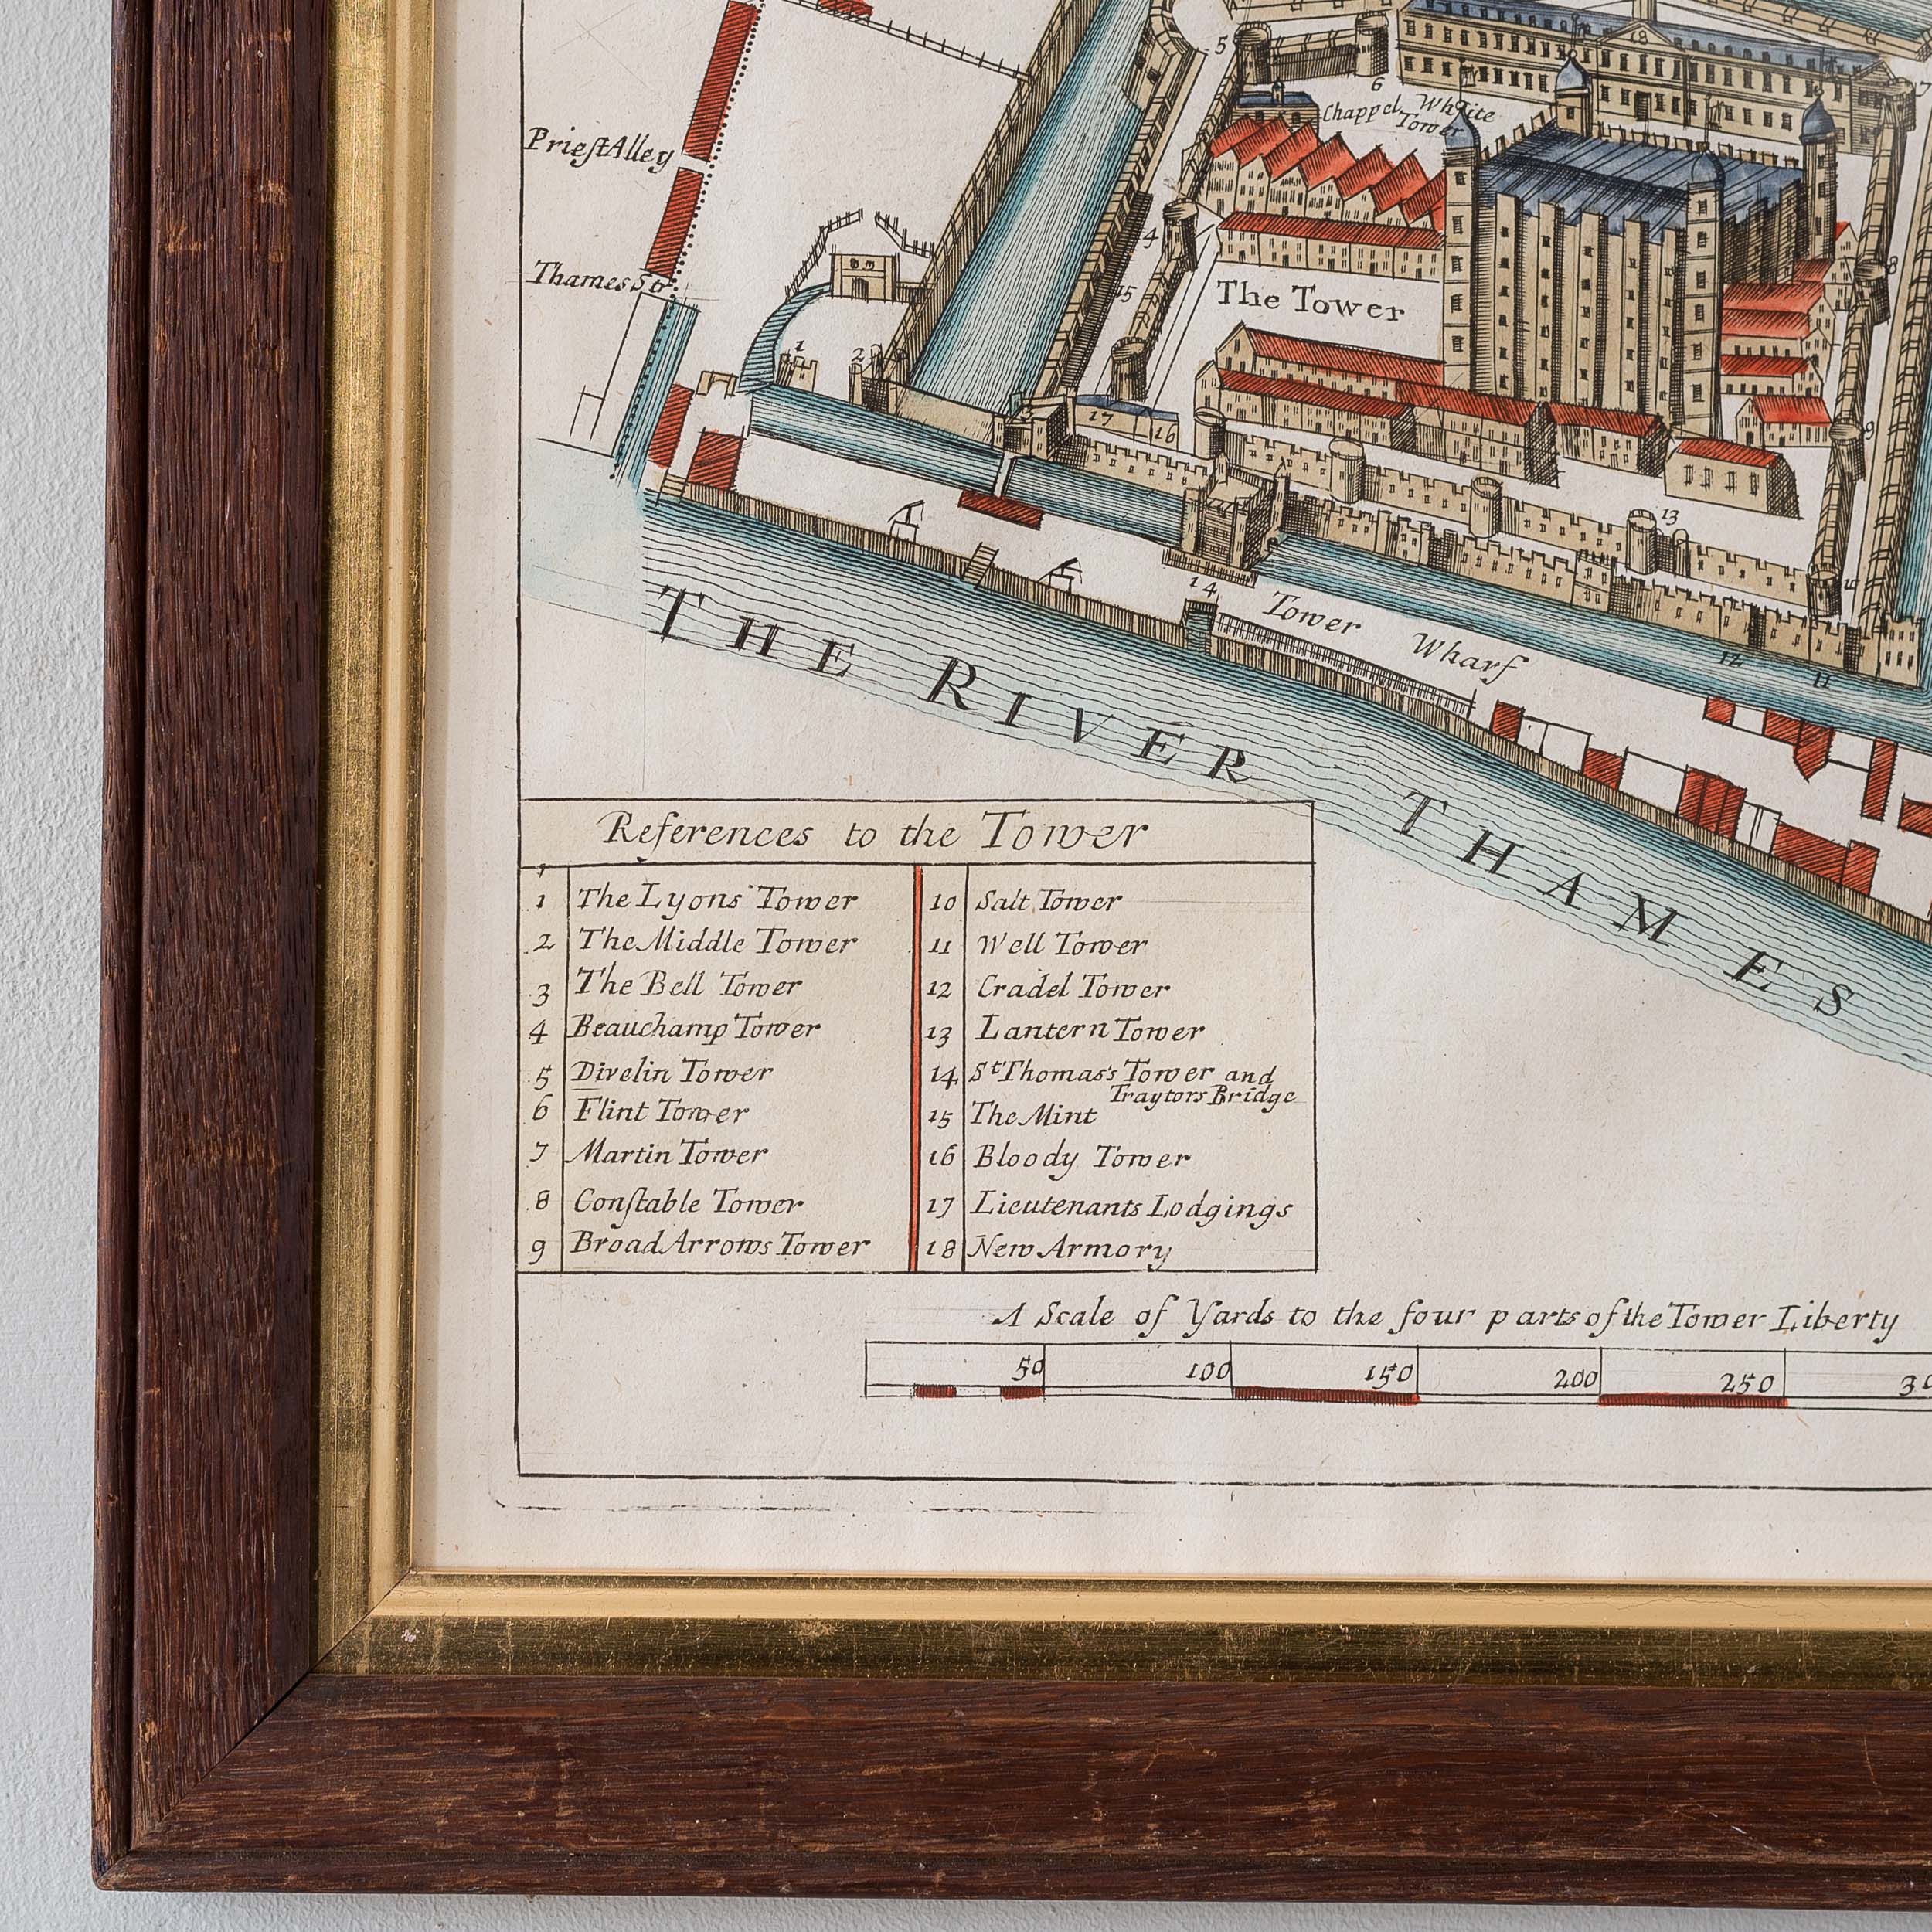 5
6
18
17
Chappel White
Tower
Prieſt Alley
4
8
15
The Tower
Thames St
1
2
3
17
16
9
13
10
14
Tower Wharf
12
11
THE RIVER THAMES
References to the Tower
1 The Lyons Tower
2 The Middle Tower
3 The Bell Tower
4 Beauchamp Tower
5 Divelin Tower
6 Flint Tower
7 Martin Tower
8 Conſtable Tower
9 Broad Arrows Tower
10 Salt Tower
11 Well Tower
12 Cradel Tower
13 Lantern Tower
14 St Thomas's Tower and
Traytors Bridge
15 The Mint
16 Bloody Tower
17 Lieutenants Lodgings
18 New Armory
A Scale of Yards to the four parts of the Tower Liberty
50 100 150 200 250